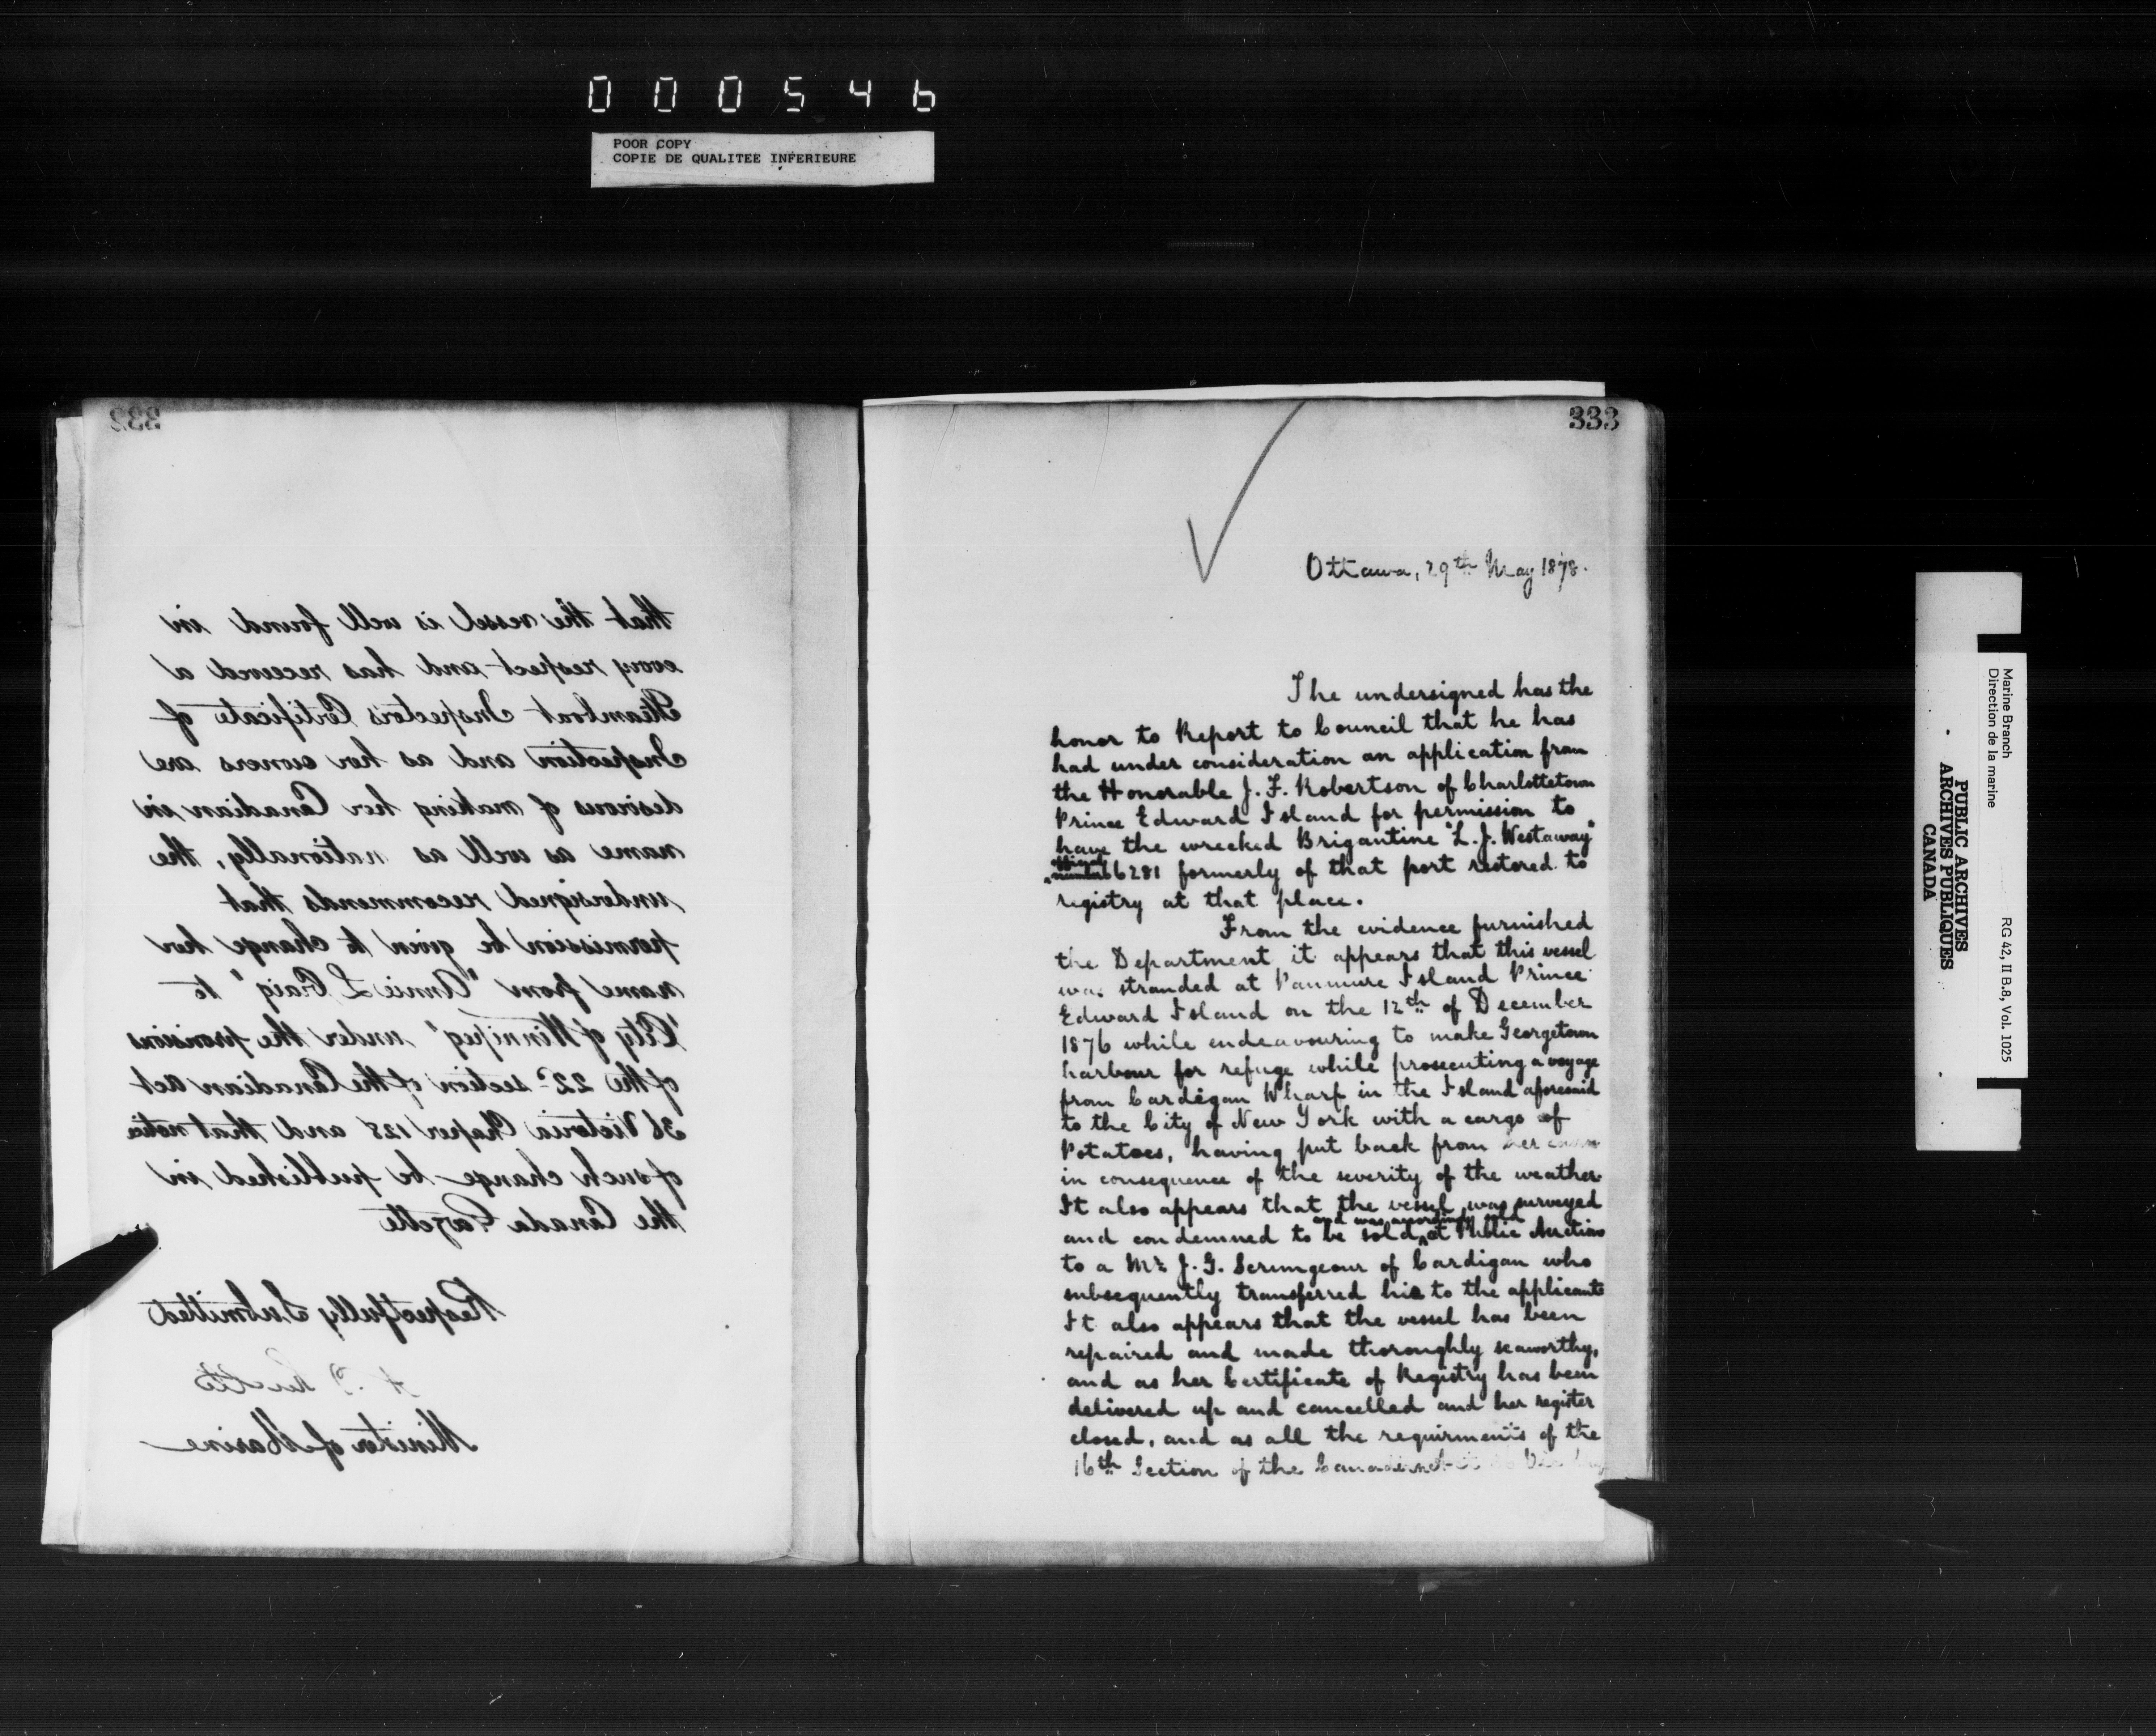 000546
POOR COPY
COPIE DE QUALITEE INFERIEURE
332
that the vessel is well found in
every respect and has received a
Steamboat Inspectors Certificate of
Inspection and as her owners are
desirous of making her Canadian in
name as well as nationally, the
undersigned recommends that
permission be given to change her
name from "Annie L Craig" to
"City of Winnipeg" under the provisions
of the 22d section of the Canadian Act
36 Victoria Chapter 128 and that notice
of such change be published in
the Canada Gazette
Respectfully Submitted
Minister of Marine
333
Ottawa, 29th May 1878.
The undersigned has the
honor to Report to Council that he has
had under consideration an application from
the Honorable J. F. Robertson of Charlottetown
Prince Edward Island for permission to
have the wrecked Brigantine "L. J. Westaway"
official
number 66281 formerly of that port restored to
registry at that place.
From the evidence furnished
the Department it appears that this vessel
was stranded at Panmure Island Prince
Edward Island on the 12th of December
1876 while endeavouring to make Georgetown
harbour for refuge while prosecuting a voyage
from Cardigan Wharf in the Island aforesaid
to the City of New York with a cargo of
Potatoes, having put back from her
in consequence of the severity of the weather
It also appears that the vessel was surveyed
and was accordingly sold
and condemned to be sold at Public Auction
to a Mr J. G. Scrimgeour of Cardigan who
subsequently transferred his to the applicants
It also appears that the vessel has been
repaired and made thoroughly seaworthy,
and as her Certificate of Registry has been
delivered up and cancelled and her register
closed, and as all the requirments of the
16th Section of the Canadian Act
Marine Branch
Direction de la marine
RG 42, II B.8, Vol. 1025
PUBLIC ARCHIVES
ARCHIVES PUBLIQUES
CANADA